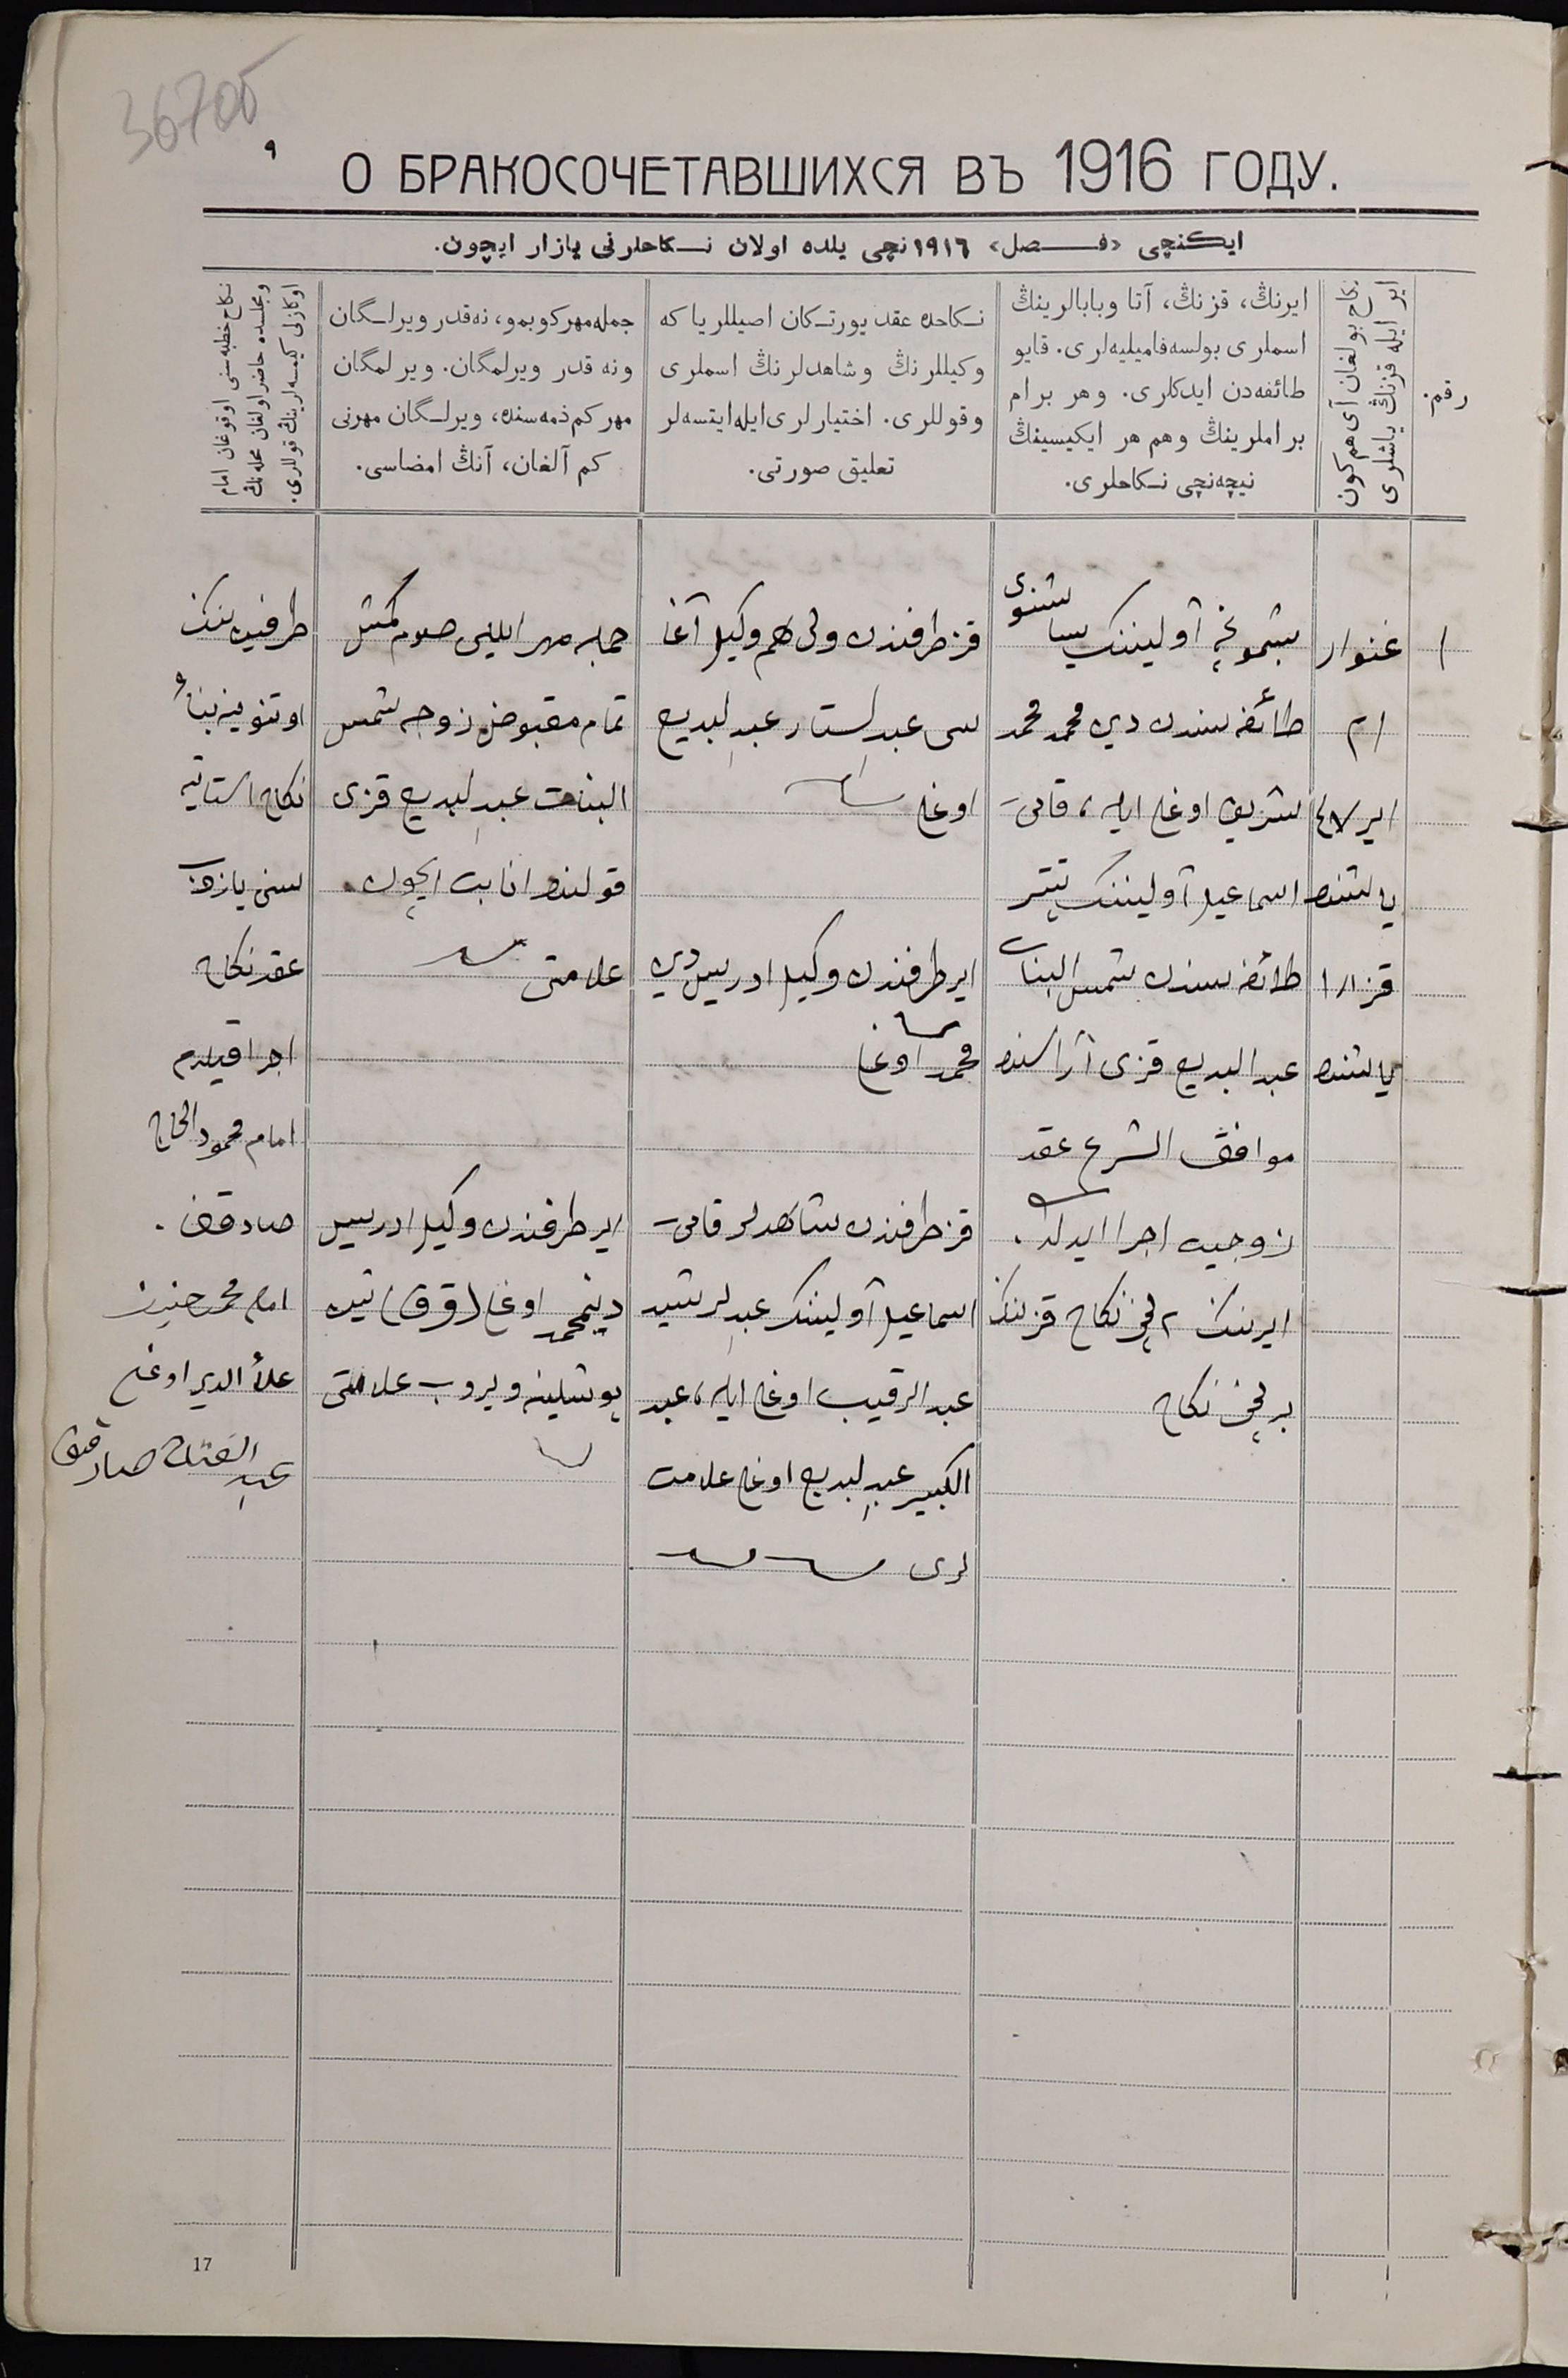 36705
٩
О БРАКОСОЧЕТАВШИХСЯ ВЪ 1916 ГОДУ.
ایكنچی «فصل» ١٩١٦نچی یلده اولان نكاحلرنی یازار ایچون.
رقم.
نكاح بولغان آی هم كون
ایر ایله قزنڭ یاشلری
ایرنڭ، قزنڭ، آتا وبابالرینڭ
اسملری بولسه فامیلیه‌لری. قایو
طائفه‌دن ایدكلری. وهر برام
براملرینڭ وهم هر ایكیسینڭ
نیچه‌نچی نكاحلری.
نكاحده عقد یورتكان اصیللر یا كه
وكیللرنڭ وشاهدلرنڭ اسملری
وقوللری. اختیارلری ایله ایتسه‌لر
تعلیق صورتی.
جمله مهر كوبمو، نه قدر ویرلگان
ونه قدر ویرلمگان. ویرلمگان
مهر كم ذمه‌سنده، ویرلگان مهرنی
كم آلغان، آنڭ امضاسی.
نكاح خطبه‌سنی اوقوغان امام
ومجلسده حاضر اولغان محله‌نڭ
اوكازلی كیمسه‌لرینڭ قوللری.
١
غنوار
ایر ٤٧
یاشنده
قز ١٨
یاشنده
آولیننك
طائفه سندن دین محمد محمد
شریف اوغلی ایله، قامی
اسماعیل آولیننك تپتر
طائفه سندن شمس البنات
عبد البدیع قزی آراسنده
موافق الشرع عقد
زوجیت اجرا ایدلدی.
ایرننك ٢ نچی نكاح قزننك
برنچی نكاح
قز طرفندن ولی هم وكیل آغا
سی عبد الستار عبد البدیع
اوغلی
ایر طرفندن وكیل ادریس دین
محمد اوغلی
قز طرفندن شاهدلر قامی
اسماعیل آولیننك عبد الرشید
عبد الرقیب اوغلی ایله، عبد
الكبیر عبد البدیع اوغلی علامت
لری
جمله مهر اللی صوم كمش
تمام مقبوض زوجه شمس
البنات عبد البدیع قزی
قولنده انابت ایچون
علامتی
ایر طرفندن وكیل ادریس
دینمحمد اوغلی (قرق) تین
پوشلینه ویروب علامتی
طرفین ننك
اوتنوینه بناء
سنی یازدوب
عقد نكاح
اجرا قیلدم
امام محمود الحاج
صادقف.
امام محمد
علأ الدین اوغلی
عبد الفتاح صادقف
17